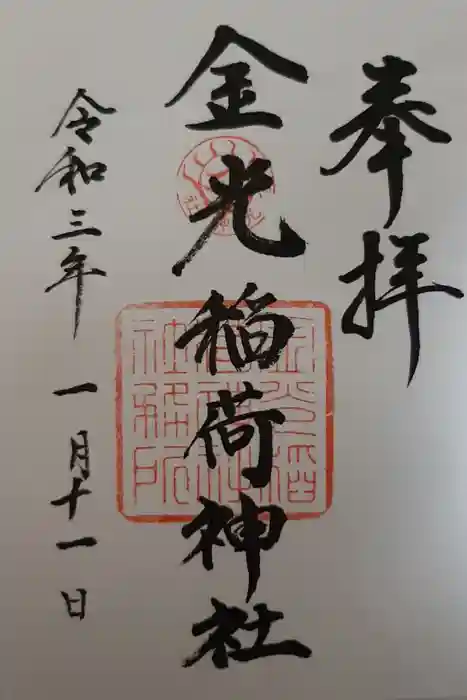 奉拝
金光稲荷神社
金光稲
荷神社
社務所
令和三年 一月十一日